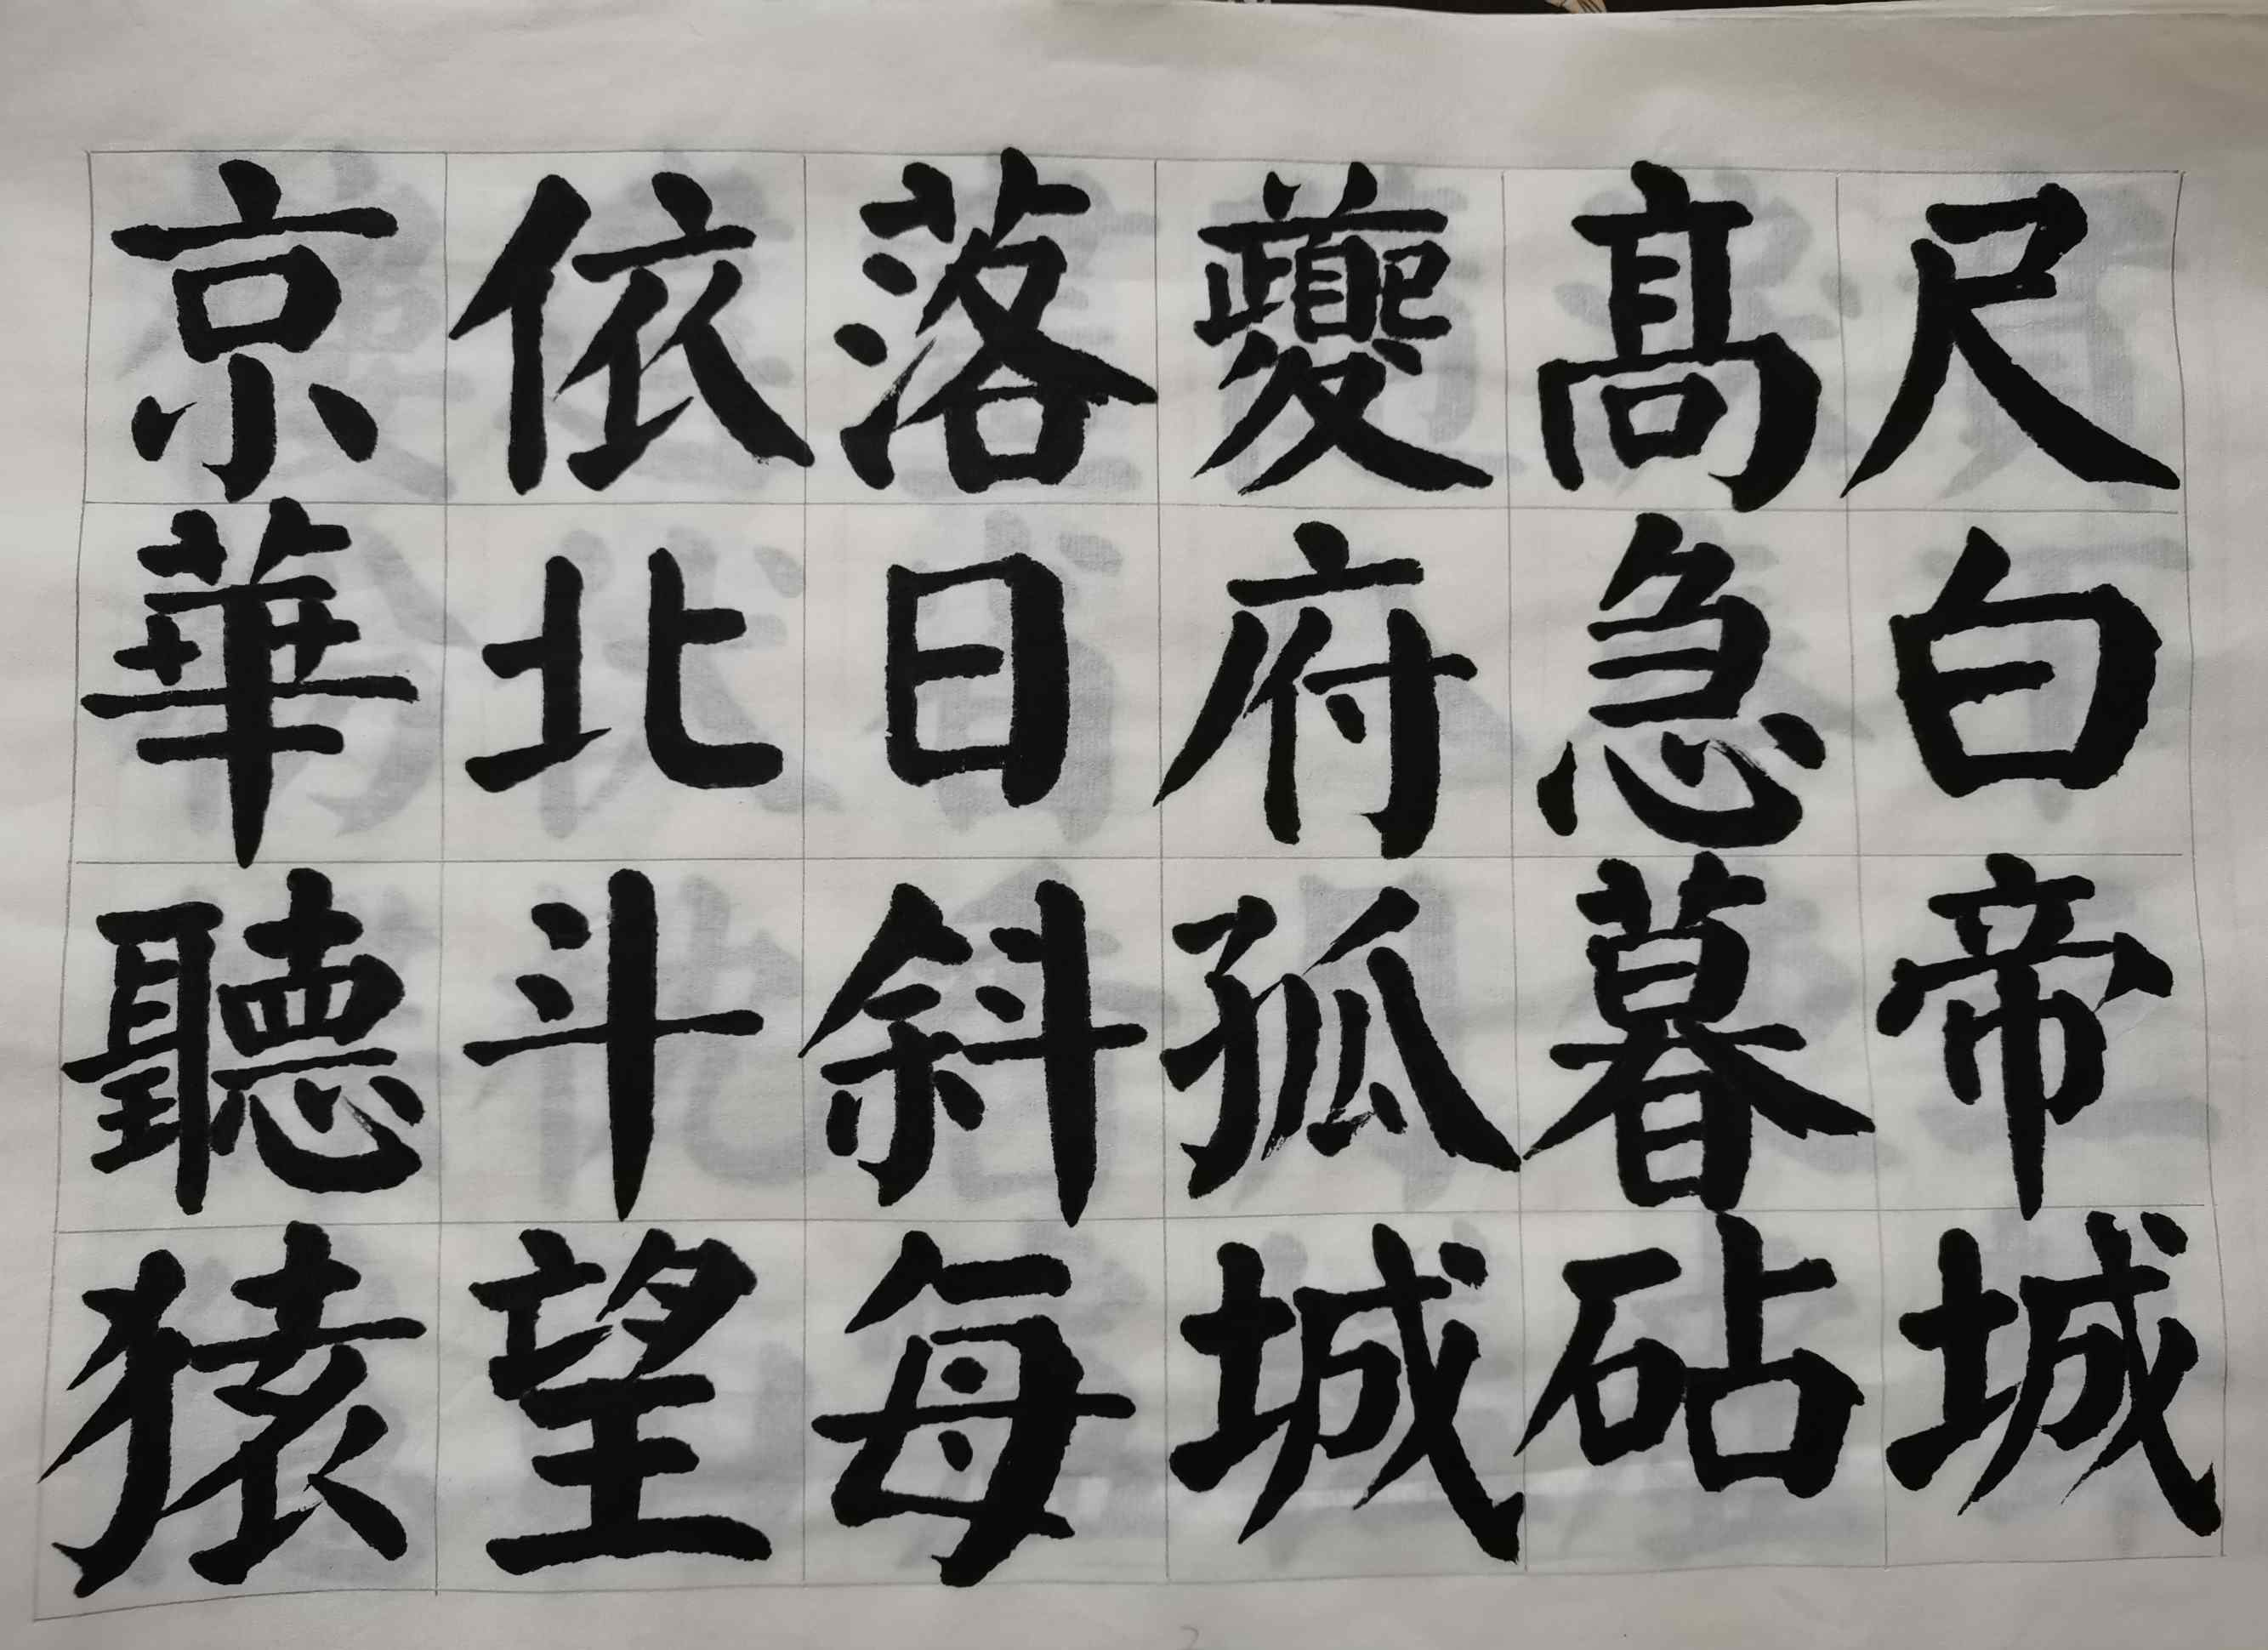 尺白帝城
髙急暮砧
夔府孤城
落日斜每
依北斗望
京華聽猿